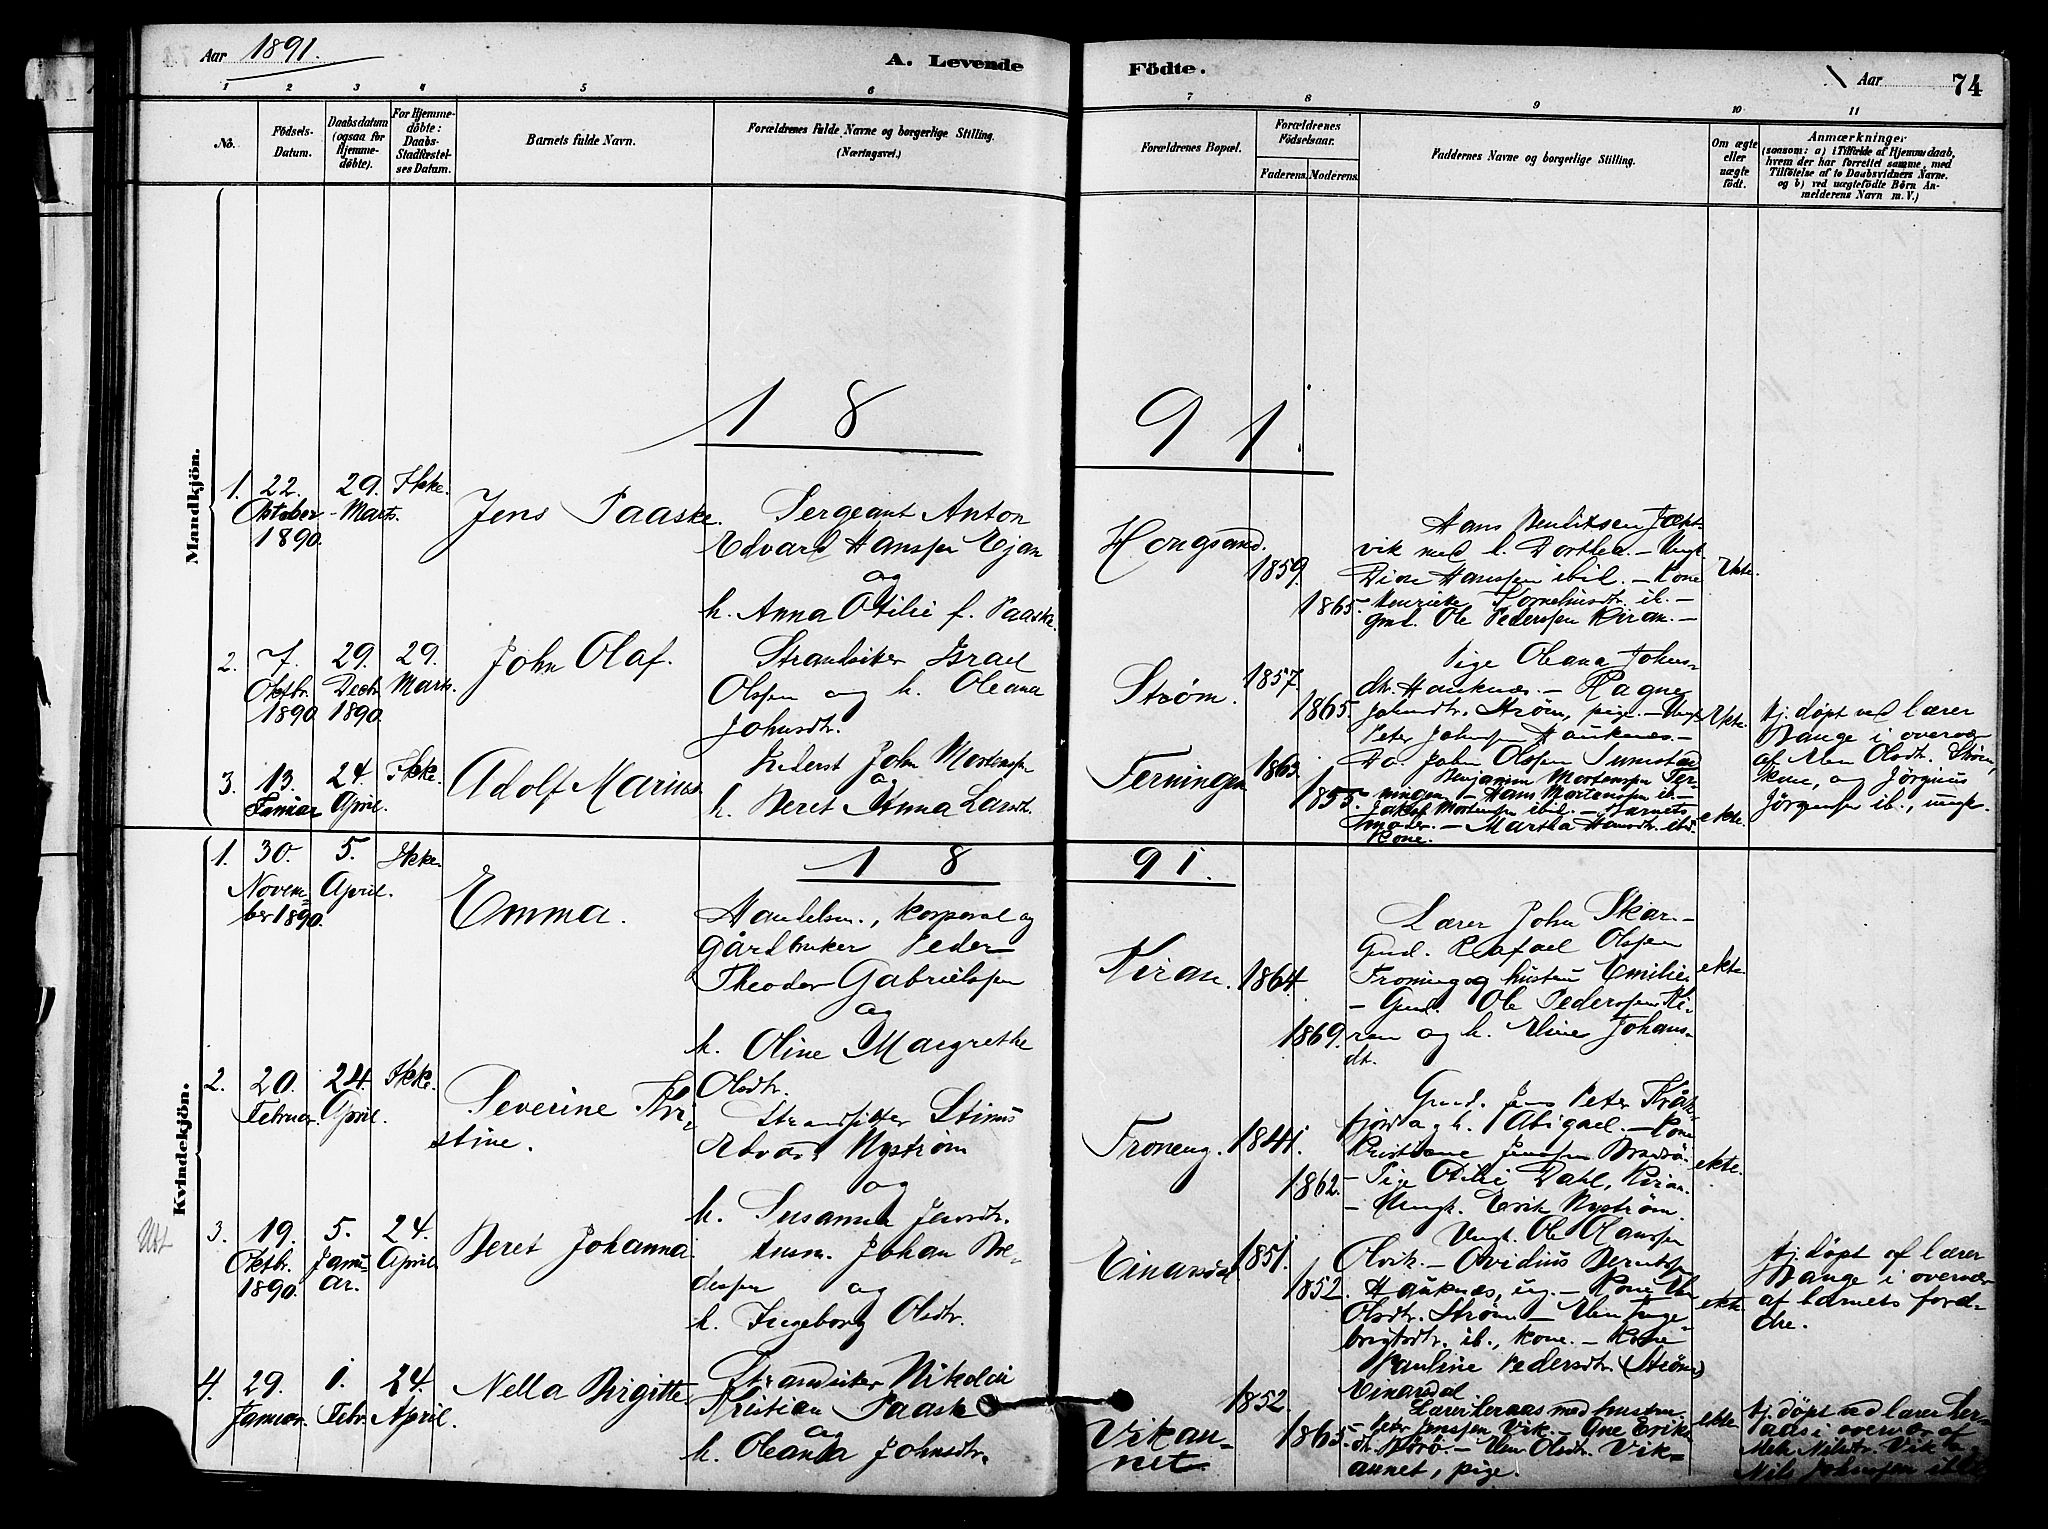 Aar 1891.
A. Levende
Födte.
Aar
74
1 2 3 4 5 6 7 8 9 10 11
No.
Födsels-
Datum.
Daabsdatum
(ogsaa for
Hjemme-
döbte).
For Hjemme-
döbte:
Daabs-
Stadfæstel-
ses Datum.
Barnets fulde Navn.
Forældrenes fulde Navne og borgerlige Stilling.
(Næringsvei.)
Forældrenes Bopæl.
Forældrenes
Födselsaar.
Faderens. Moderens.
Faddernes Navne og borgerlige Stilling.
Om ægte
eller
uægte
födt.
Anmærkninger
(saasom: a) i Tilfælde af Hjemmedaab,
hvem der har forrettet samme, med
Tilföielse af to Daabsvidners Navne,
og b) ved uægtefödte Börn An-
melderens Navn m. V.)
Mandkjön.
1 8 9 1.
1.
22.
Oktober
1890.
29.
Marts.
Ikke.
Jens Paaske.
Sergeant Anton
Edvard Hanssen Ejan
og
h. Anna Otilie f. Paaske.
Hongsand.
1859.
1865.
vik med h. Dorthea. – Ungk.
Hanssen ibid. – Kone
Henrikke Korneliusdtr. ib. –
Gmd. Ole Pederssen Kiran. –
Ekte.
2.
7.
Oktbr.
1890
29.
Decbr.
1890.
29.
Marts.
John Olaf.
Strandsitter Israel
Olssen og h. Oleana
Johnsdtr.
Strøm.
1857.
1865.
Pige Oleana Johns-
dtr. Hauknæs. – Ragne
Johnsdtr. Strøm, pige. – Ungk.
Peter Johnssen Hauknæs. –
Do. John Olssen Sumstad
Ekte.
Hj. døpt ved lærer
Hauge i overvær
af Elen Olsdtr. Strøm,
kone, og Jørginus
Jørgenssen ib., ungk.
3.
13.
Januar
24.
April.
Ikke.
Adolf Marius.
Inderst John Mortenssen
og
h. Beret Anna Larsdt.
Terningen
1863.
1855.
Benjamin Mortenssen Ter-
ningen – Hans Mortenssen ib –
Jakob Mortenssen ibid. – Barnets
moder. – Martha Hansdtr. ibd.
Kone.
ekte.
Kvindekjön.
1 8 9 1.
1.
30.
Novem-
ber 1890.
5.
April.
Ikke.
Emma.
Handelsm., korporal og
gårdbruker Peder
Theodor Gabrielssen
og
h. Oline Margrethe
Olsdtr.
Kiran.
1864.
1869.
Lærer John Skar. –
Gmd. Rafael Olssen
Froning og hustru Emilie.
– Gmd. Ole Pederssen Ki-
ran og h. Eline Johans-
dt.
ekte.
2.
20.
Februar.
24.
April.
Ikke.
Severine Kri-
stine.
Strandsitter Stinus
Edvard Nystrøm
og
h. Susanna Jensdtr.
Froneng.
1841.
1862.
Gmd. Jens Peter Kråk-
fjord og h. Abigael. – Kone
Kristiane Jenssen
– Pige Otilie Dahl, Kiran.
– Ungk. Erik Nystrøm.
ekte.
3.
19.
Oktbr.
1890.
5.
Janu-
ar.
24.
April.
Beret Johanna.
Husm. Johan Pe-
derssen og
h. Ingeborg Olsdtr.
Einarsdal.
1851.
1852.
Ungk. Ole Hanssen
Olsvik. – Ovidius Berntssen
Hauknæs, ung. – Kone
Olsdtr. Strøm – Elen Inge-
brigtsdtr. ib., kone. – Kone
Pauline Pedersdtr. (Strøm)
Einarsdal
ekte.
Hj. døpt af lærer
Hauge i overvær
af barnets foræl-
dre.
4.
29.
Januar.
1.
Febr.
24.
April.
Nella Birgitte.
Strandsitter Nikolai
Kristian Paaske
og
h. Oleana Johnsdtr.
Vikan-
net.
1852.
1865.
Lærer Leraas med hustru
– Peder Jenssen Vik. – Ane Eriks-
dt. – Elen Olsdtr. Vik-
annet, pige.
ekte
Hj. døpt ved lærer Ler-
aas i overvær af
Nilsdtr. Vik og
Nils Johnssen ibid.